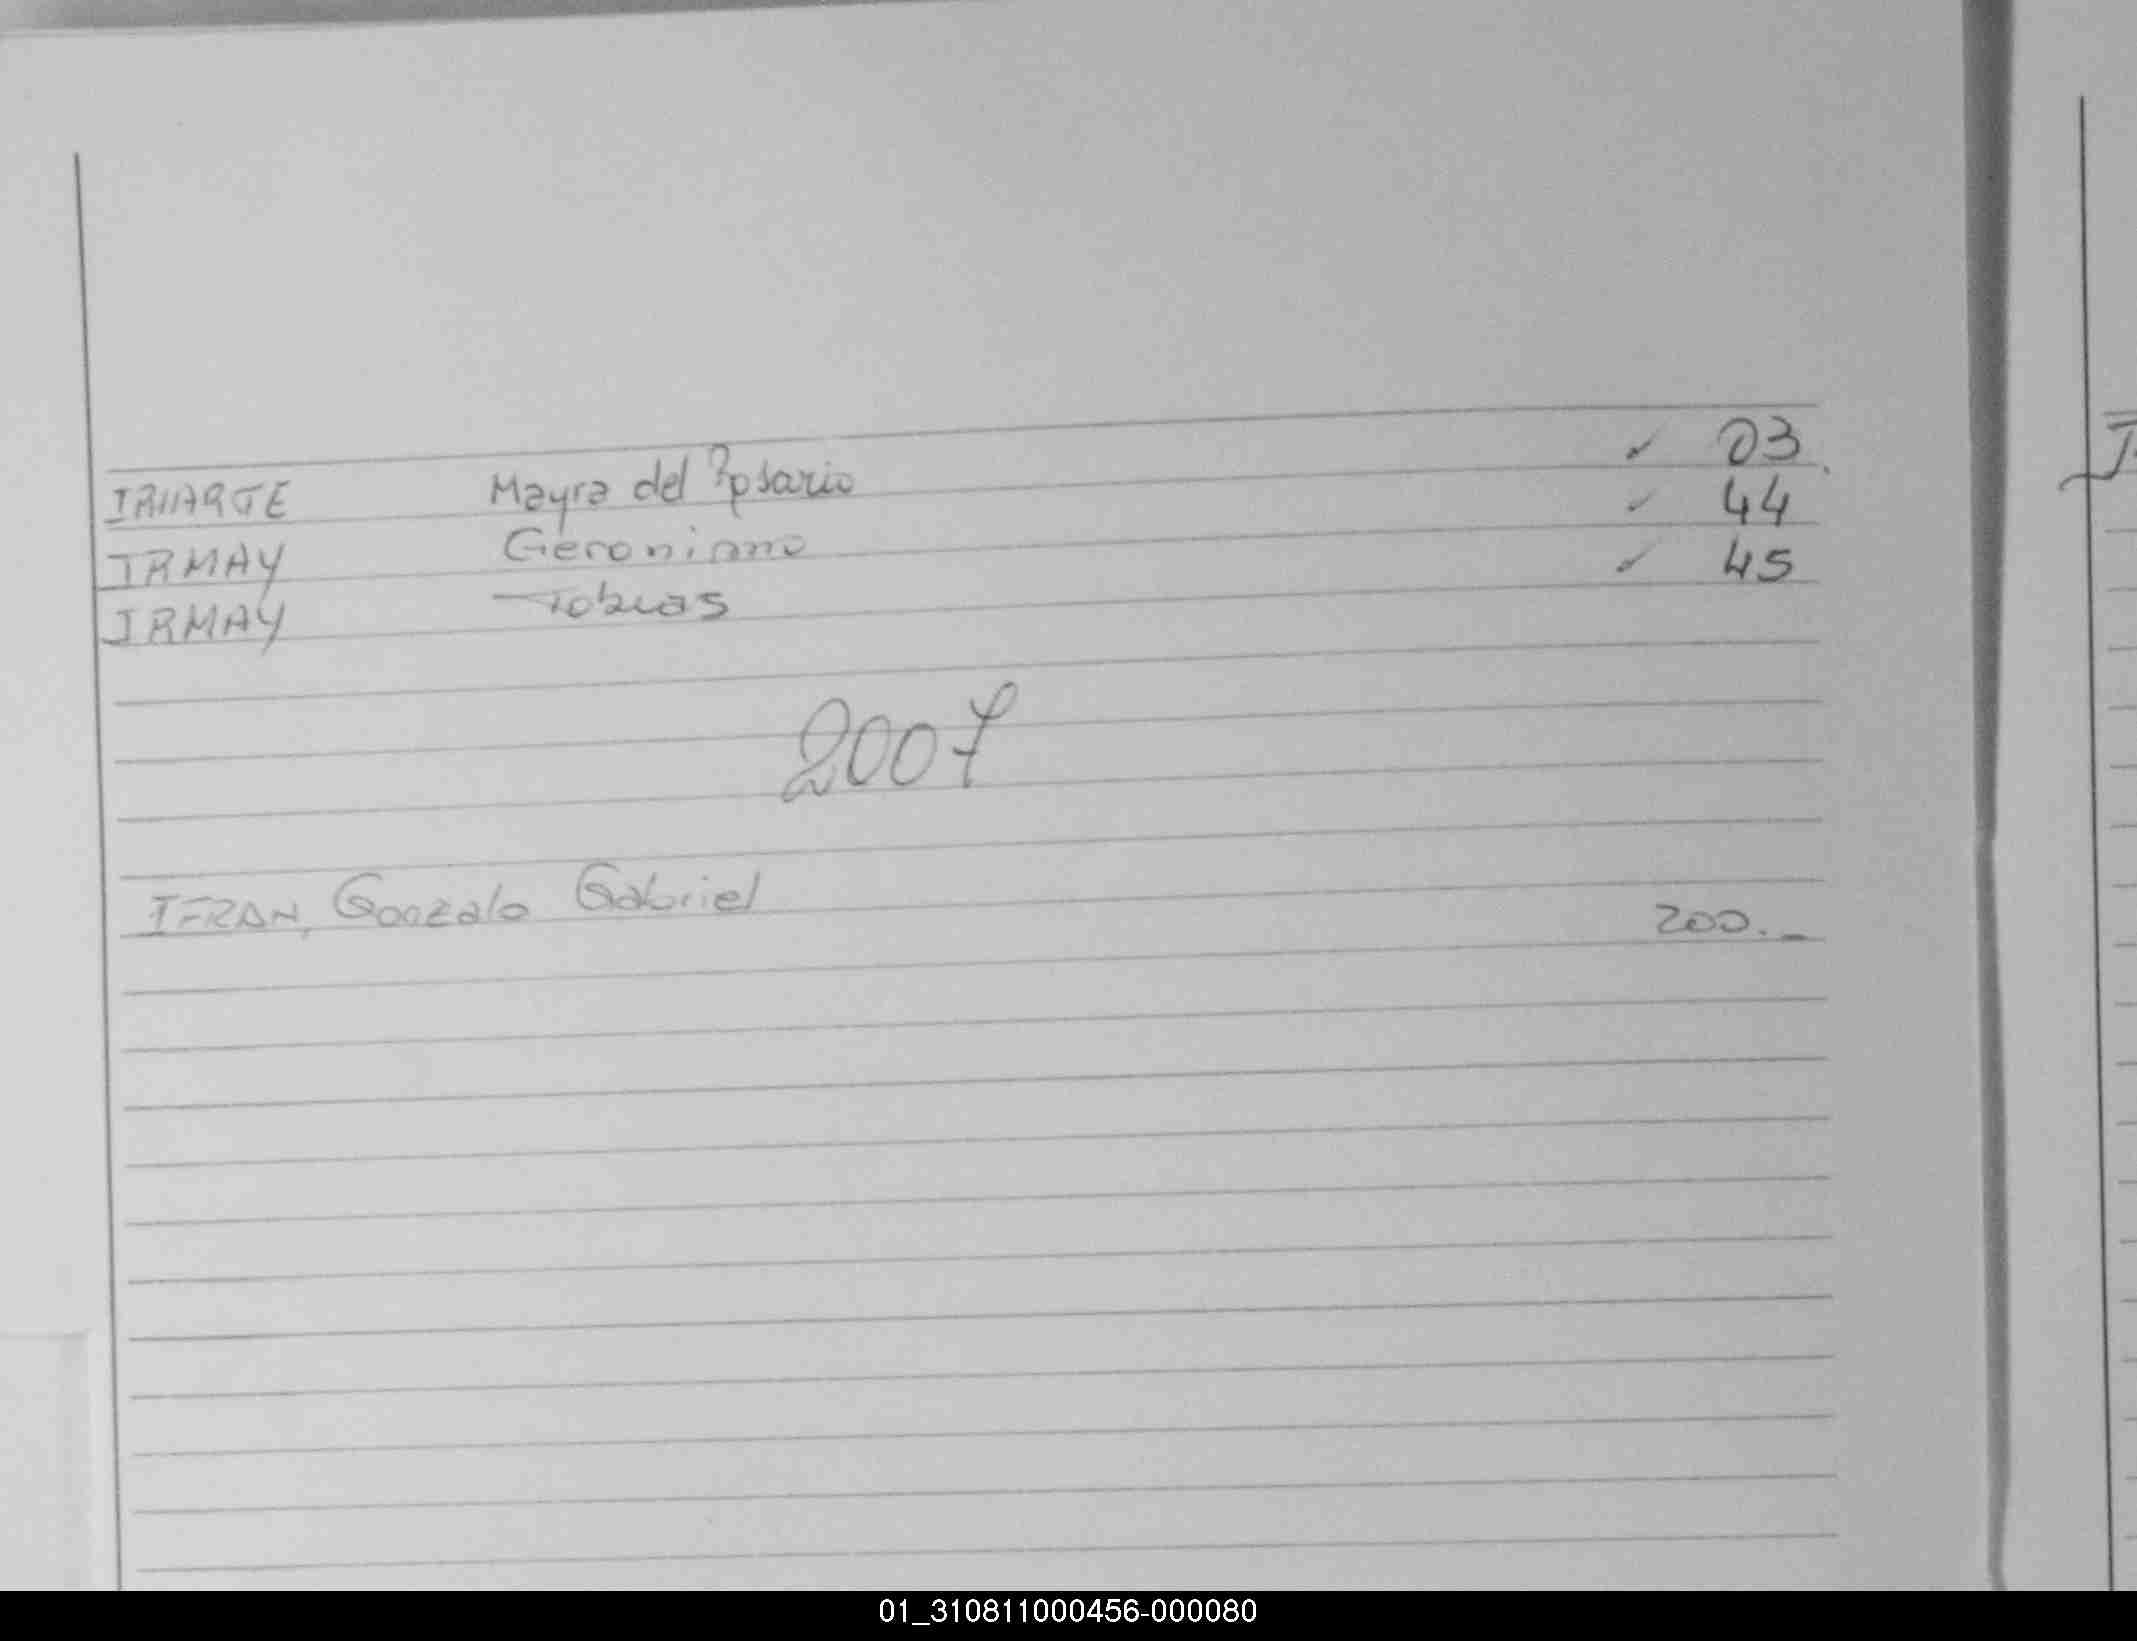 IRIARTE Mayra del Rosario ✓ 03
IRMAY Geronimo ✓ 44
IRMAY Tobias ✓ 45
2007
IFRAN, Gonzalo Gabriel 200._
01_310811000456-000080